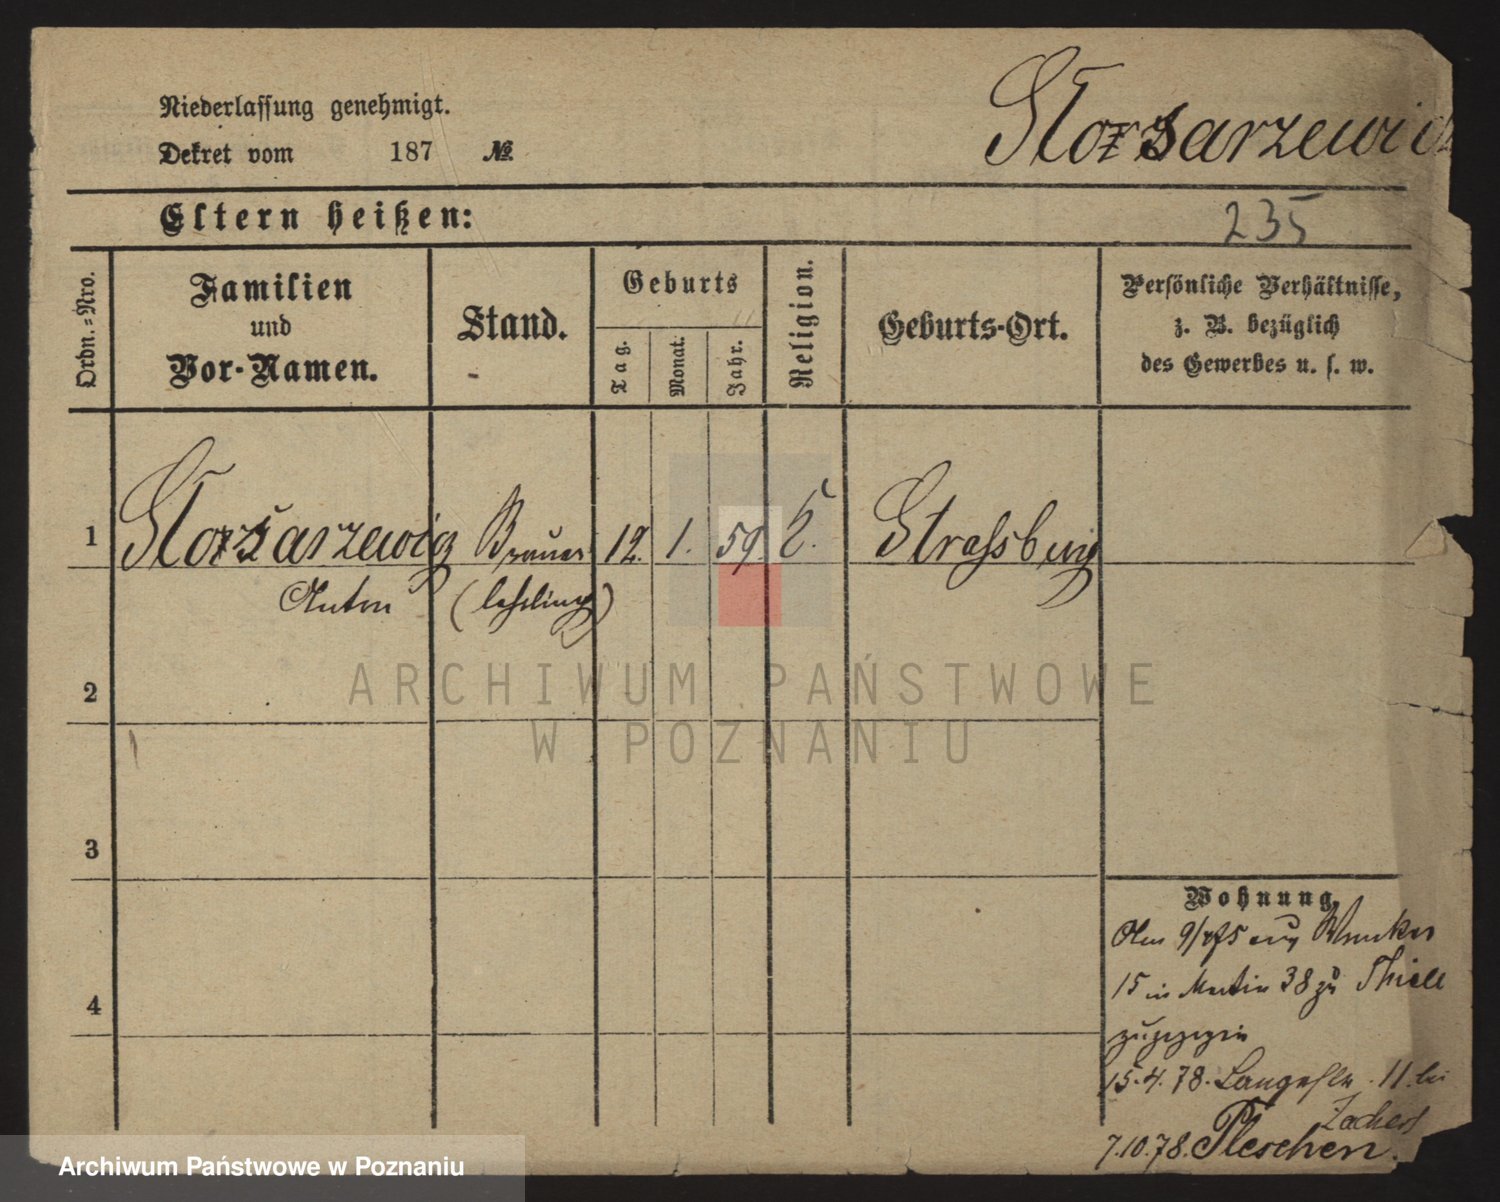 Niederlassung genehmigt.
Dekret vom 187 №
Eltern heißen:
235
Ordn.-Nro.
Familien
und
Vor-Namen.
Stand.
Geburts
Tag.
Monat.
Jahr.
Religion.
Geburts-Ort.
Persönliche Verhältnisse,
z. B. bezüglich
des Gewerbes u. s. w.
1 Brauer 12. 1. 59. Strassburg
Anton (lehrling)
2
3
4
Wohnung
15 in Martin 38 zu Thiele
15.4.78. Langestr. 11 bei
Zachert
7.10.78. Pleschen.
ARCHIWUM PAŃSTWOWE
W POZNANIU
Archiwum Państwowe w Poznaniu